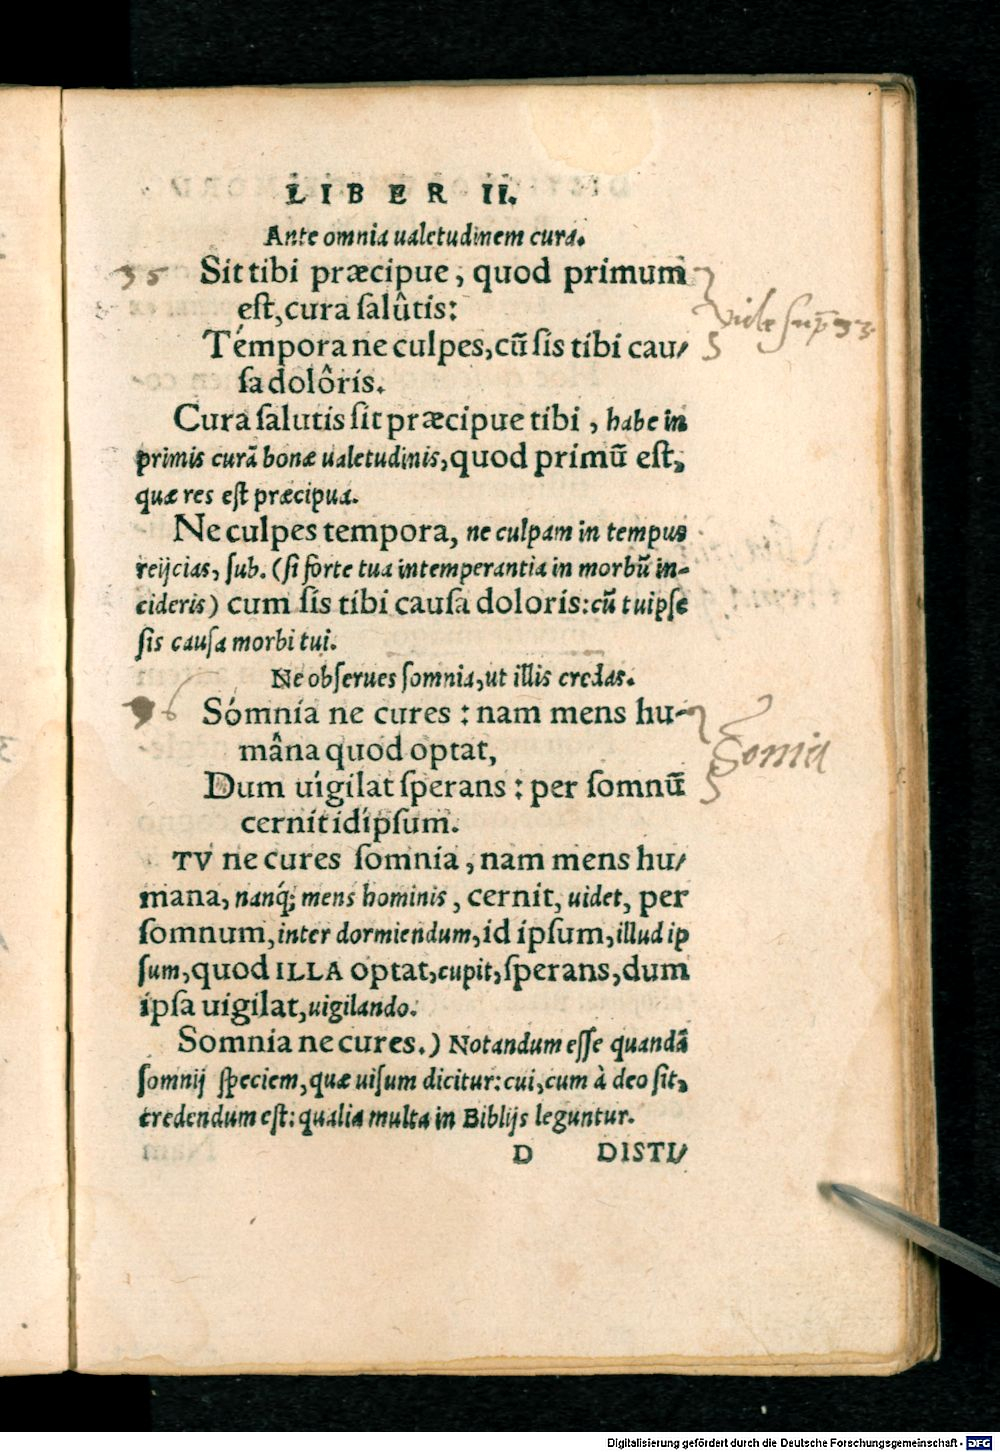 LIBER II.
Ante omnia ualetudinem cura.
35 Sit tibi præcipue, quod primum
est, cura salûtis:
vide sup 33.
Témpora ne culpes, cũ sis tibi cau/
sa dolôris.
Cura salutis sit præcipue tibi, habe in
primis curã bonæ ualetudinis, quod primũ est,
quæ res est præcipua.
Ne culpes tempora, ne culpam in tempus
reijcias, sub. (si forte tua intemperantia in morbũ in-
cideris) cum sis tibi causa doloris: cũ tuipse
sis causa morbi tui.
Ne obserues somnia, ut illis credas.
36 Sómnia ne cures: nam mens hu-
mâna quod optat,
Somia
Dum uígilat sperans: per somnũ
cernit idípsum.
TV ne cures somnia, nam mens hu/
mana, nanq́; mens hominis, cernit, uidet, per
somnum, inter dormiendum, id ipsum, illud ip
sum, quod ILLA optat, cupit, sperans, dum
ipsa uigilat, uigilando.
Somnia ne cures.) Notandum esse quandã
somnij speciem, quæ uisum dicitur: cui, cum à deo sit,
credendum est: qualia multa in Biblijs leguntur.
D DISTI/
Digitalisierung gefördert durch die Deutsche Forschungsgemeinschaft - DFG